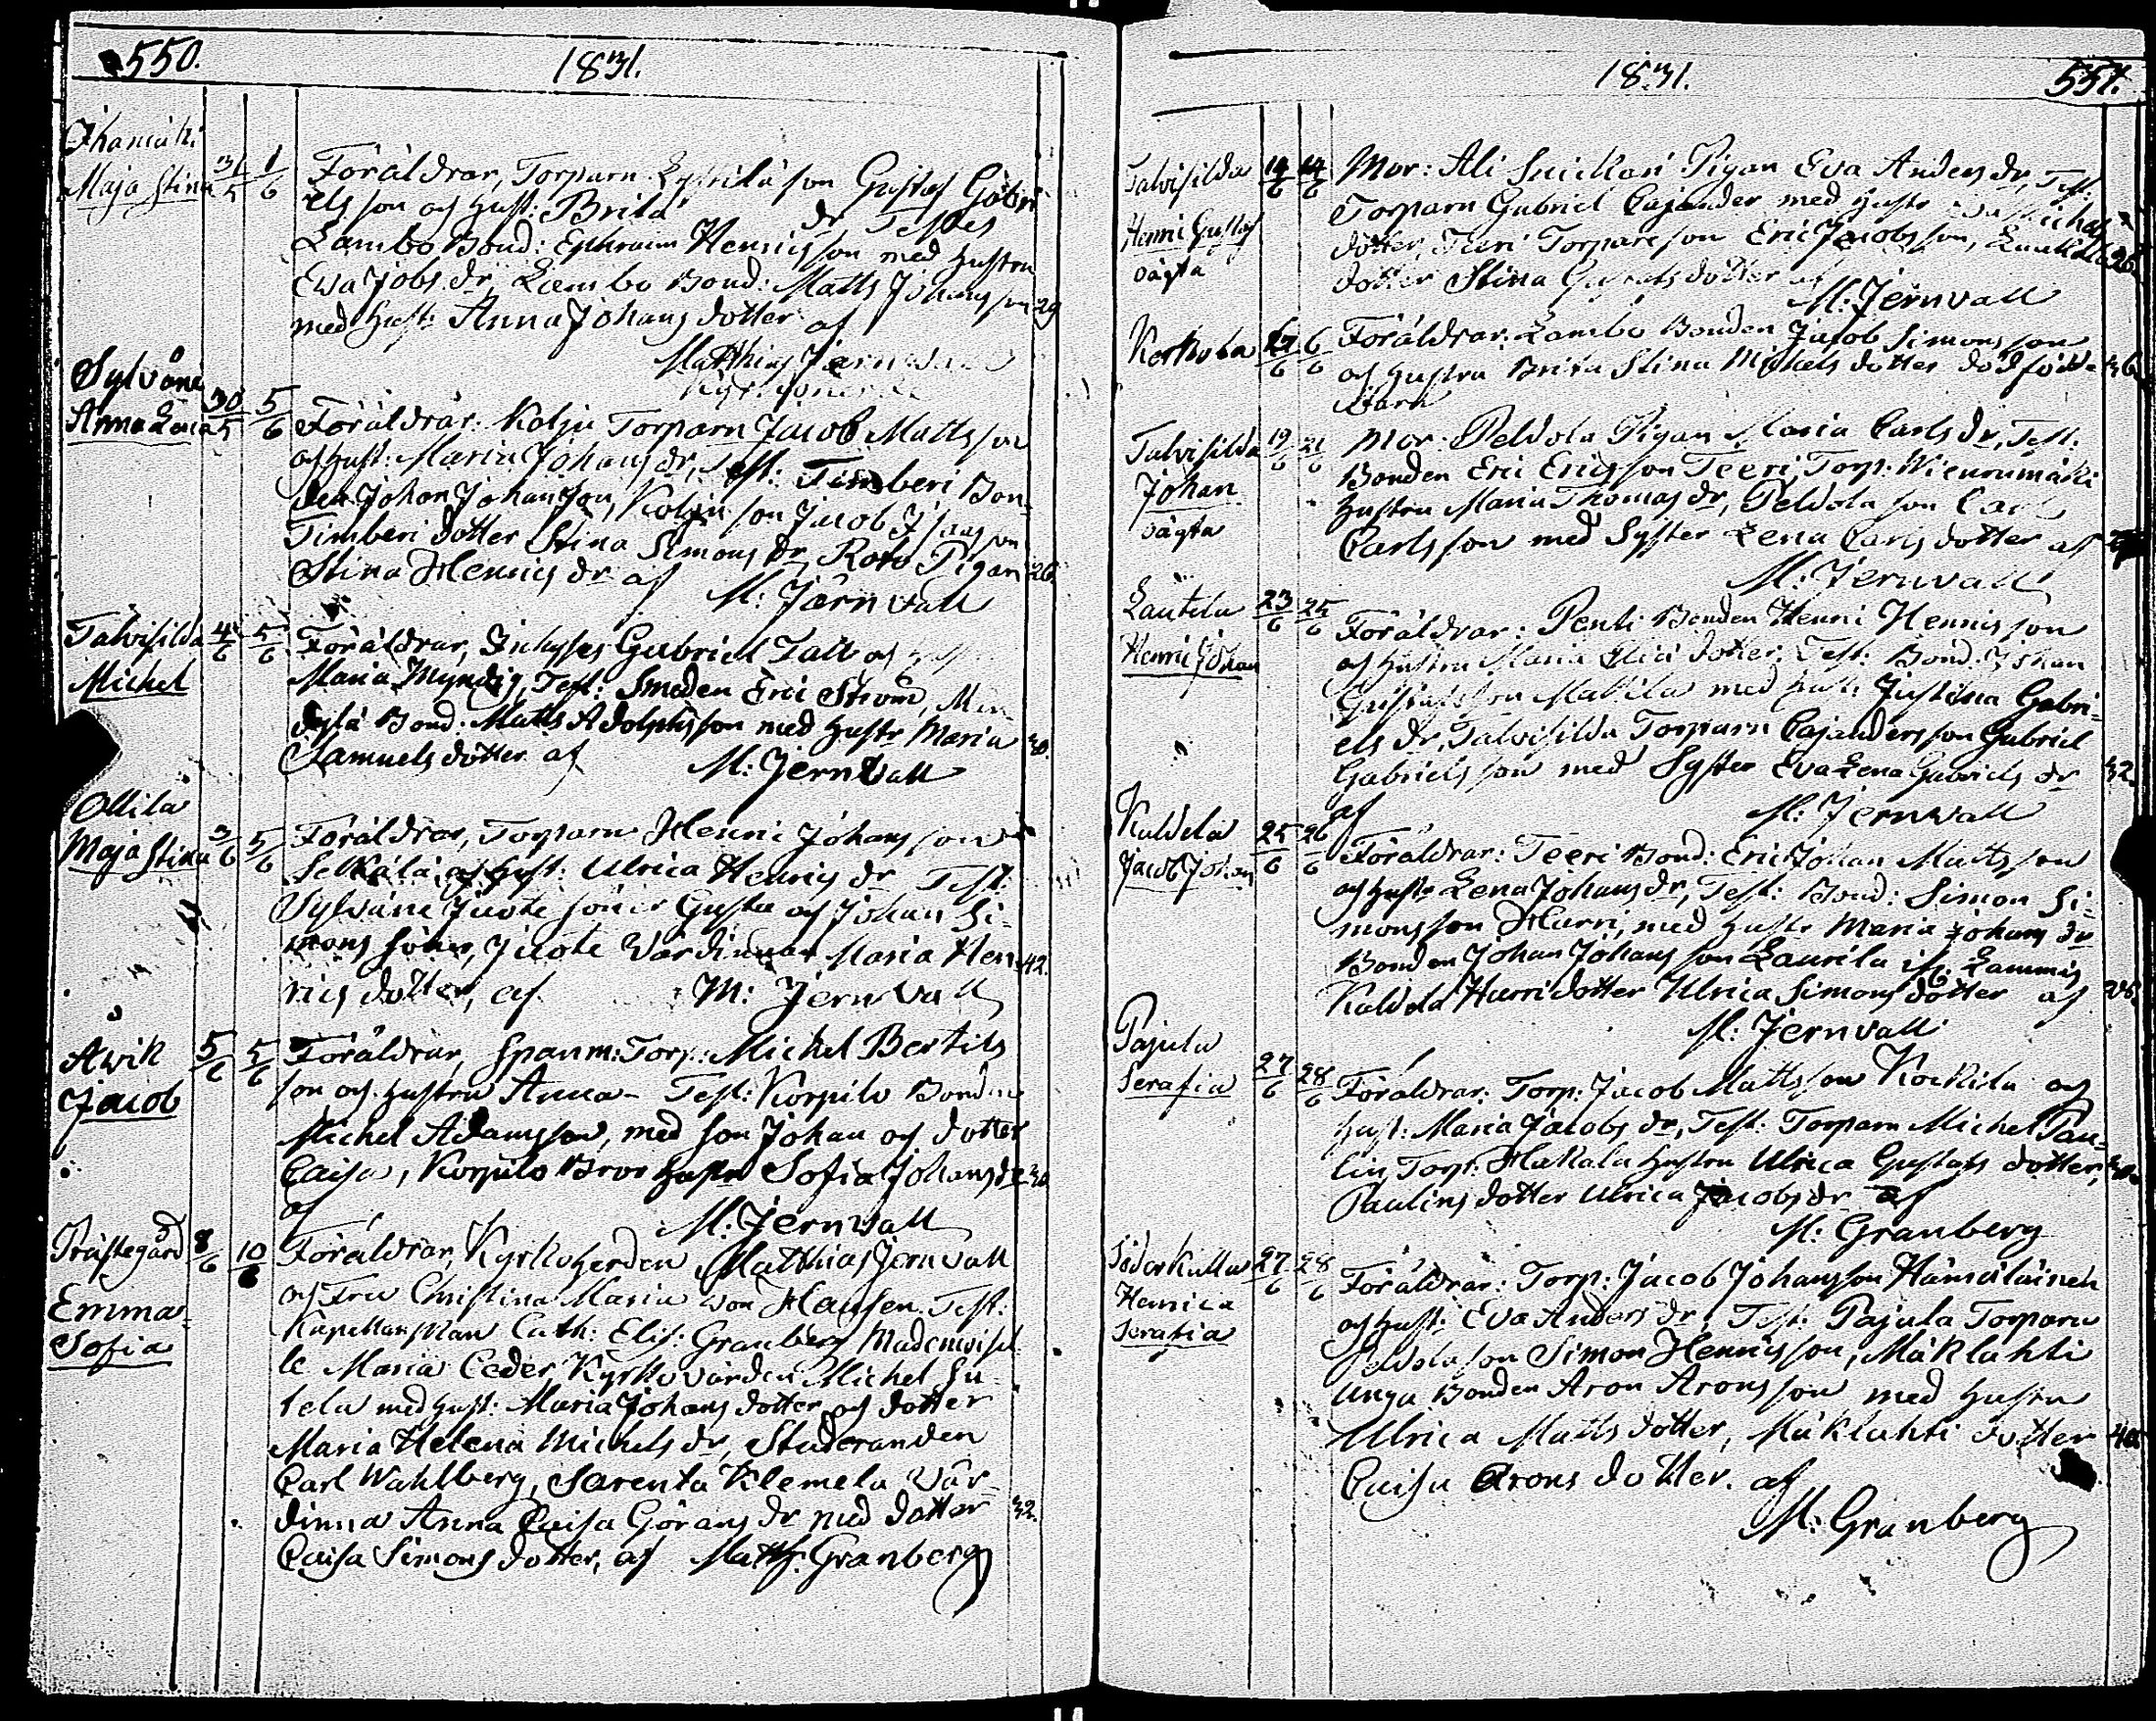 550.
1831.
Maja Stina 31/5 1/6
Föräldrar, Torparn son Gustaf Gabri
els son och Hust: Brita dr Testes
Lambo Bond: Ephraim Henricsson med Hustru
Eva Jobs dr, Lambo Bond: Matts Johansson 29
med Hust: Anna Johans dotter af
Matthias Jernvall
Sylväne
Anna Lena 30/5 5/6
Föräldrar: Kolju Torparn Jacob Matts son
och Hust: Maria Johans dr, Test: Timberi Bon-
den Johan Johansson, Kolju son Jacob
Timberi dotter Stina Simons dr, Roto Pigan 26
Stina Henrics dr af M: Järnvall
Talvisilda 4/6 5/6
Michel
Föräldrar, Gabriel Tall och
Maria Myndig, Test: Smeden Eric Ström,
Bond: Matts Adolphsson med Hustr Maria 30.
Samuels dotter af M: Jernvall
Ollila
Maja Stina 3/6 5/6
Föräldrar, Torparn Henric Johans son
Selkälä och Hust: Ulrica Henrics dr Test:
Sylväne Juote söner Gustaf och Johan Si-
mons söner, Juote Värdinnan Maria Hen 42.
rics dotter, af M: Jernvall
Avik 5/6 5/6
Jacob
Föräldrar, Spanm: Torp: Michel Bertils
son och Hustru Anna - Test: Korpilo Bonden
Michel Adamsson, med son Johan och dotter
Caisa, Korpilo Bror Hustru Sofia Johans dr 30
af M: Jernvall
Prästegård 8/6 10/6
Emma
Sofia
Föräldrar, Kyrkoherden Matthias Jernvall
och Fru Christina Maria von Hausen Test:
Kapellanskan Cath: Elis: Granberg Mademoisel
le Maria Ceder, Kyrkovärden Michel Su-
tela med Hust: Maria Johans dotter och dotter
Maria Helena Michels dr, Studeranden
Carl Wahlberg, Sarenta Klemela Vär-
dinna Anna Caisa Görans dr med dotter 32.
Caisa Simons dotter, af Matths Granberg
1831.
551.
Talvisilda 14/6 14/6
Henric Gustaf
oägta
Mor: Ali Snickari Pigan Eva Anders dr, Test:
Torparn Gabriel Cajander med Hustr Michels
dotter, Teeri Torpare son Eric Jacobsson,
dotter Stina dotter af
M: Jernvall
Kerkola 6/6
Föräldrar: Lambo Bonden Jacob Simons son
och Hustru Brita Stina Michels dotter dödfödt 36
Barn
Talvisilda 19/6 21/6
Johan
oägta
Mor: Peldola Pigan Maria Carls dr, Test:
Bonden Eric Ericsson Teeri, Torp: Wicurumäki
Hustru Maria Thomas dr, Peldola son Carl
Carlsson med Syster Lena Carls dotter af
M: Jernvall
Lautila 23/6 25/6
Henric Johan
Föräldrar: Penti Bonden Henric Henricsson
och Hustru Maria dotter. Test: Bond: Johan
Gustafsson Mattila med Hust: Justina Gabri-
els dr, Talvisilda Torparn Cajanders son Gabriel
Gabrielsson med Syster Eva Lena Gabriels dr 32
af M: Jernvall
Kaldela 25/6 26/6
Jacob Johan
Föräldrar: Teeri Bond: Eric Johan Mattsson
och Hustr Lena Johans dr, Test: Bond: Simon Si-
monsson Harri, med Hustr Maria Johans dr
Bonden Johan Johansson Laurila i Lammis
Kaldela Harri dotter Ulrica Simons dotter af 28
M: Jernvall
Pajula
Serafia 27/6 28/6
Föräldrar: Torp: Jacob Mattsson Kockila och
Hust: Maria Jacobs dr, Test: Torparn Michel Pau-
lin, Torp: Hakala Hustru Ulrica Gustafs dotter,
Paulins dotter Ulrica Jacobs dr af
M: Granberg
Söderkulla 27/6 28/6
Henrica
Serafia
Föräldrar: Torp: Jacob Johansson Hämäläinen
och Hust: Eva Anders dr, Test: Pajula Torparn
Peldola son Simon Henricsson, Mäklahti
Unga Bonden Aron Aronsson med Hustru
Ulrica Matts dotter, Mäklahti dotter 40
Caisa Arons dotter. af
M: Granberg